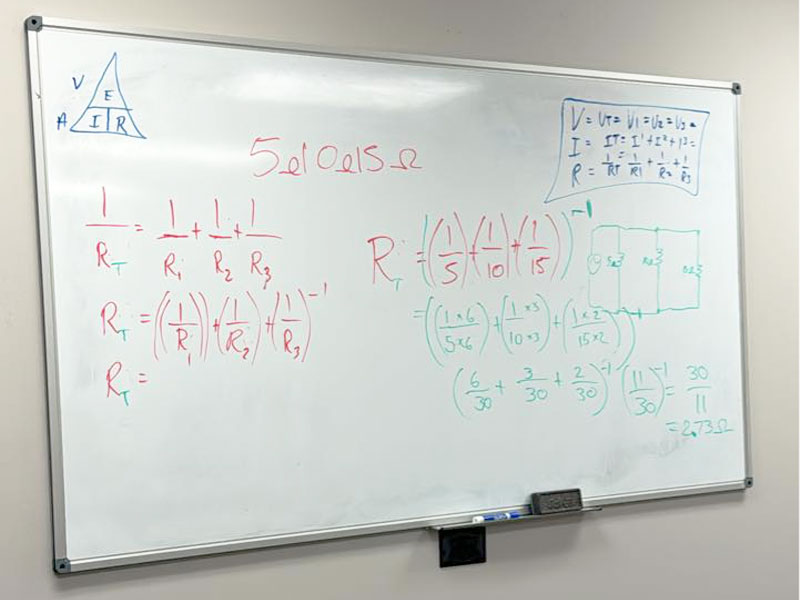 V
E
A I R
5Ω 10Ω 15Ω
V = VT = V1 = V2 = V3 =
I = IT = I1 + I2 + I3 =
R = 1/RT = 1/R1 + 1/R2 + 1/R3
1/R_T = 1/R_1 + 1/R_2 + 1/R_3
R_T = ((1/R_1) + (1/R_2) + (1/R_3)^-1
R_T =
R_T = ((1/5) + (1/10) + (1/15))^-1
= ((1×6/5×6) + (1×3/10×3) + (1×2/15×2))
(6/30 + 3/30 + 2/30)^-1 (11/30)^-1 = 30/11
= 2.73Ω